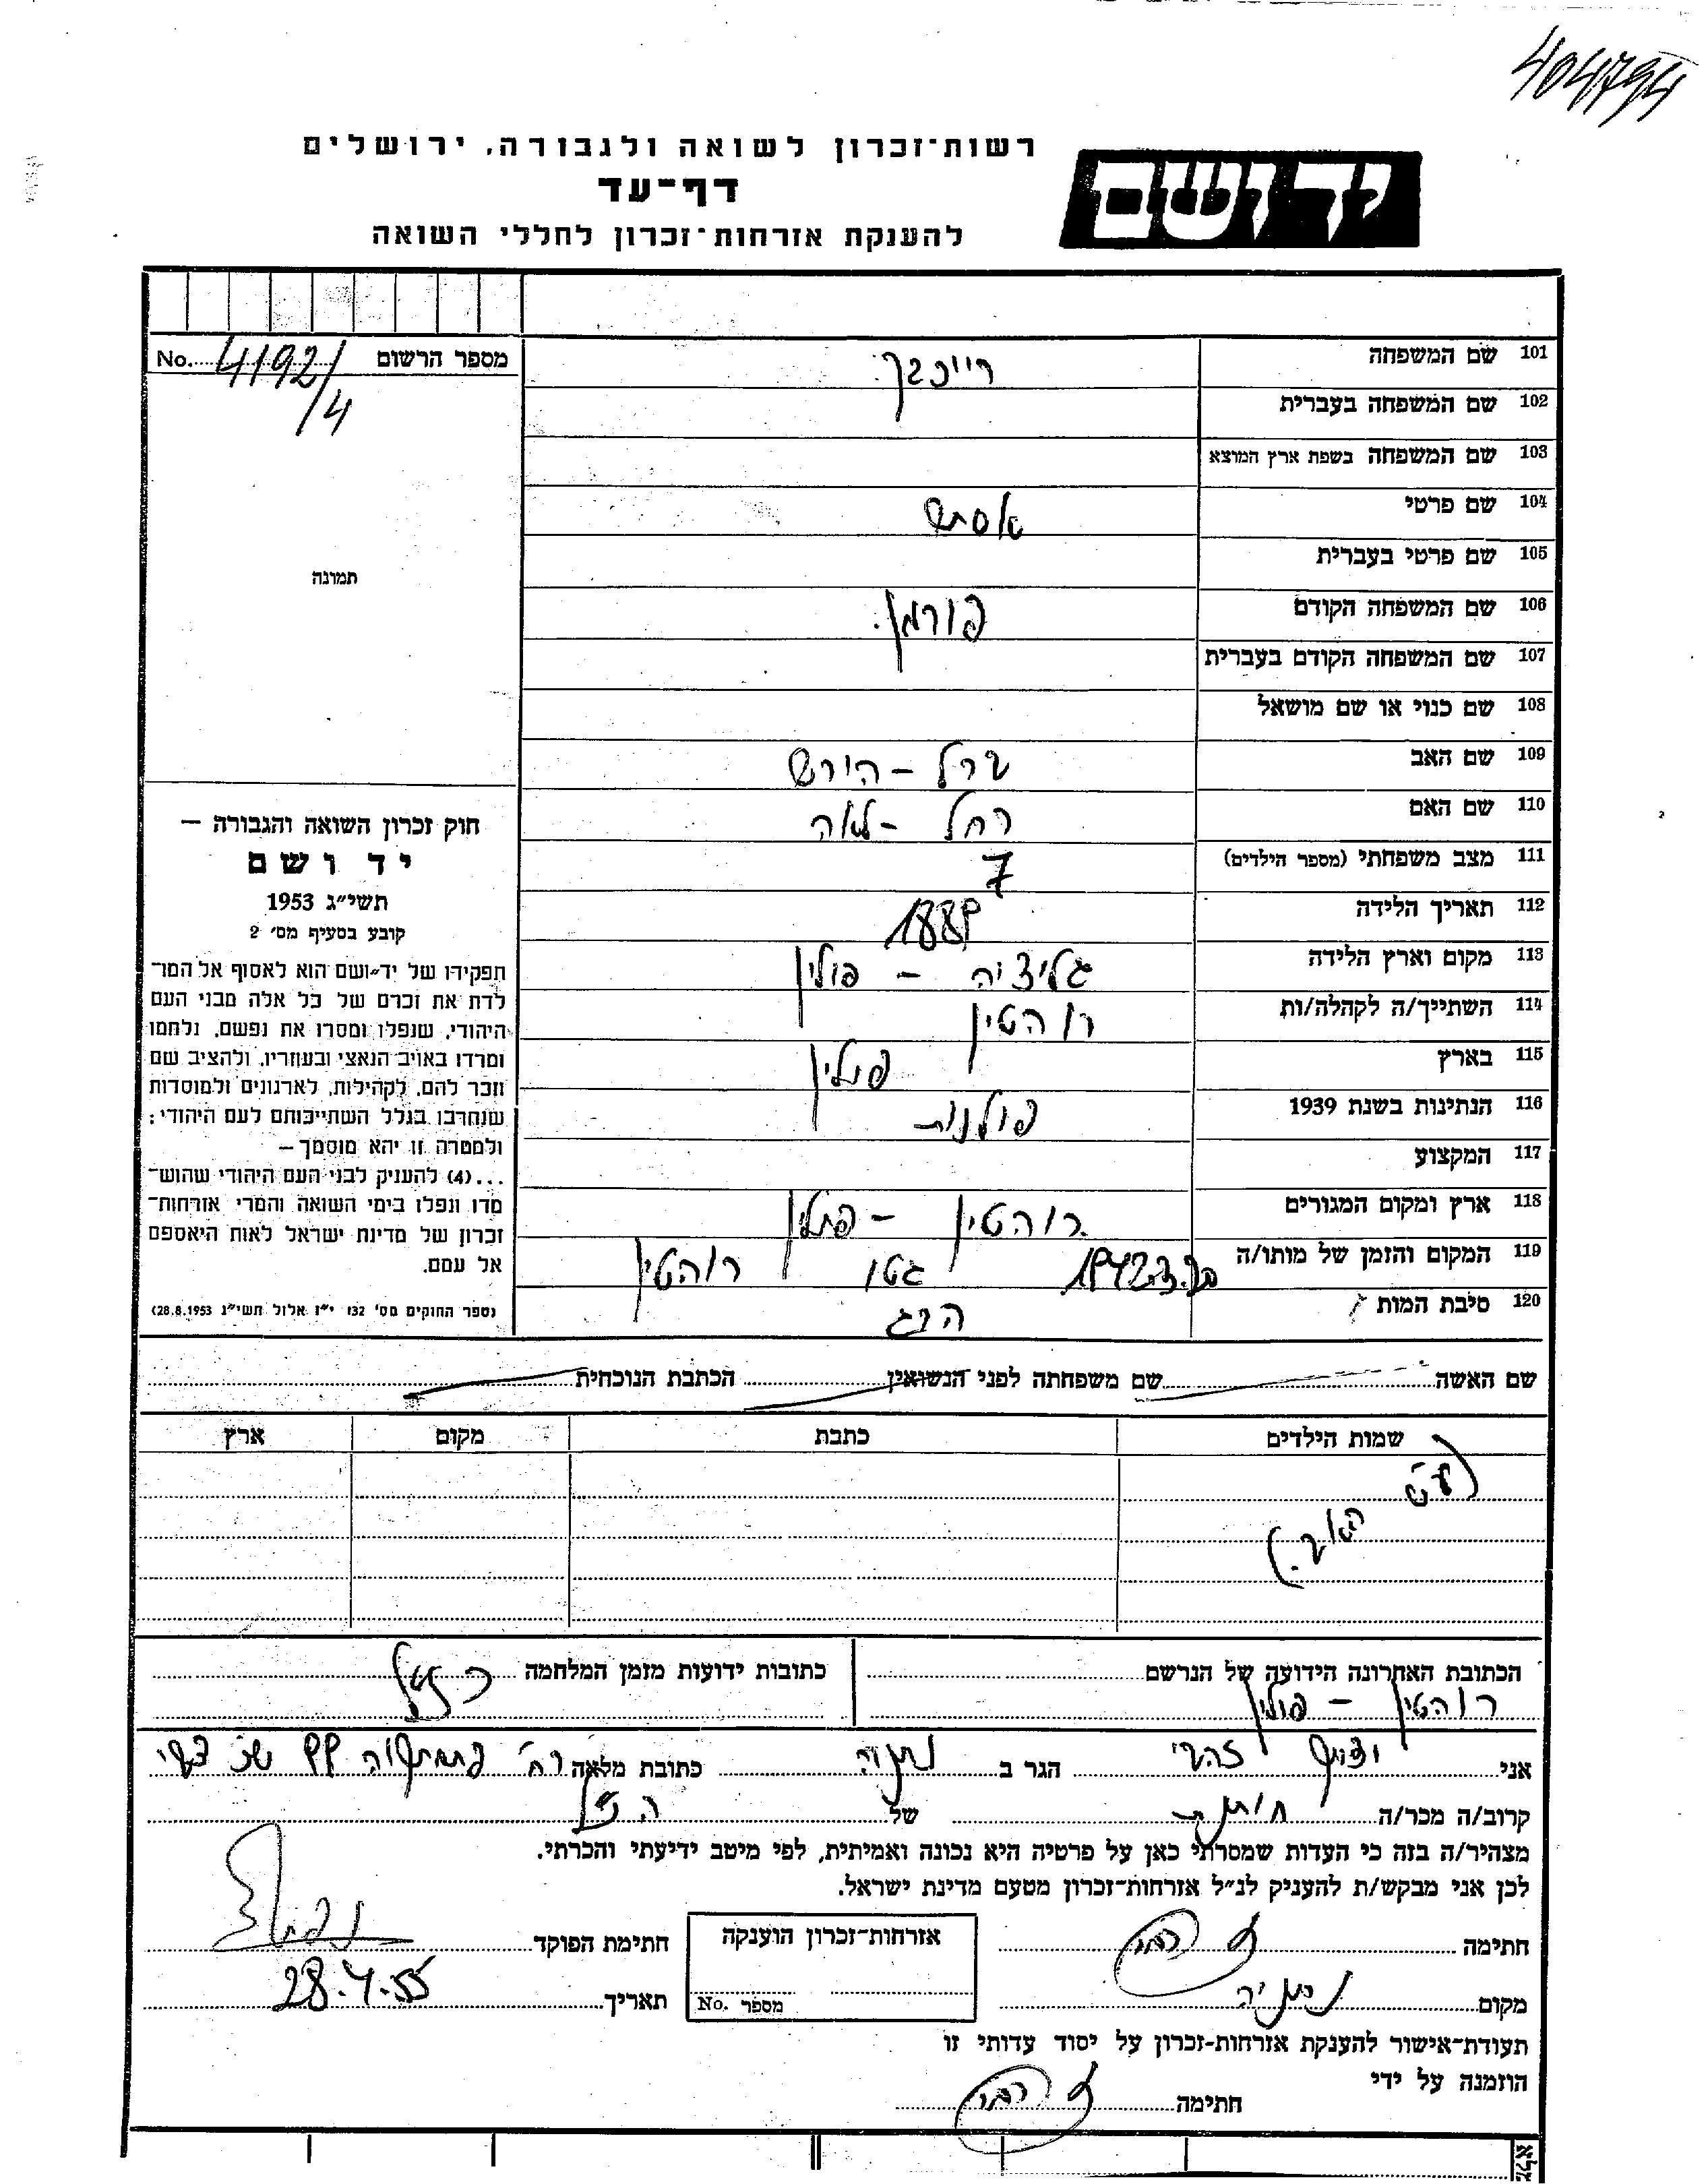 404794
רשות־זכרון לשואה ולגבורה, ירושלים
יד ושם
דף־עד
להענקת אזרחות־זכרון לחללי השואה
מספר הרשום No. 4192/4
101 שם המשפחה רייכבך
102 שם המשפחה בעברית
103 שם המשפחה בשפת ארץ המוצא
104 שם פרטי אסתר
105 שם פרטי בעברית
תמונה
106 שם המשפחה הקודם פורמן
107 שם המשפחה הקודם בעברית
108 שם כנוי או שם מושאל
109 שם האב ברל - הירש
110 שם האם רחל - לאה
111 מצב משפחתי (מספר הילדים) 7
112 תאריך הלידה 1889
113 מקום וארץ הלידה גליציה - פולין
114 השתייך/ה לקהלה/ות רוהטין
115 בארץ פולין
116 הנתינות בשנת 1939 פולנית
117 המקצוע
118 ארץ ומקום המגורים רוהטין - פולין
119 המקום והזמן של מותו/ה 20.3.1942 גטו רוהטין
120 סיבת המות הרג
חוק זכרון השואה והגבורה –
יד ושם
תשי״ג 1953
קובע בסעיף מס׳ 2
תפקידו של יד־ושם הוא לאסוף אל המו־
לדת את זכרם של כל אלה מבני העם
היהודי, שנפלו ומסרו את נפשם, נלחמו
ומרדו באויב הנאצי ובעוזריו, ולהציב שם
וזכר להם, לקהילות, לארגונים ולמוסדות
שנחרבו בגלל השתייכותם לעם היהודי;
ולמטרה זו יהא מוסמך –
...(4) להעניק לבני העם היהודי שהוש־
מדו ונפלו בימי השואה והמרי אזרחות־
זכרון של מדינת ישראל לאות היאספם
אל עמם.
(ספר החוקים מס׳ 132 י״ז אלול תשי״ג 28.8.1953)
שם האשה שם משפחתה לפני הנשואין הכתבת הנוכחית
שמות הילדים כתבת מקום ארץ
הכתובת האחרונה הידועה של הנרשם כתובות ידועות מזמן המלחמה כנ״ל
רוהטין - פולין
אני זהבי הגר ב נתניה כתובת מלאה רח׳
קרוב/ה מכר/ה של הנ״ל
מצהיר/ה בזה כי העדות שמסרתי כאן על פרטיה היא נכונה ואמיתית, לפי מיטב ידיעתי והכרתי.
לכן אני מבקש/ת להעניק לנ״ל אזרחות־זכרון מטעם מדינת ישראל.
חתימה אזרחות־זכרון הוענקה חתימת הפוקד
מקום נתניה מספר No. תאריך 28.4.55
תעודת־אישור להענקת אזרחות־זכרון על יסוד עדותי זו
הוזמנה על ידי
חתימה